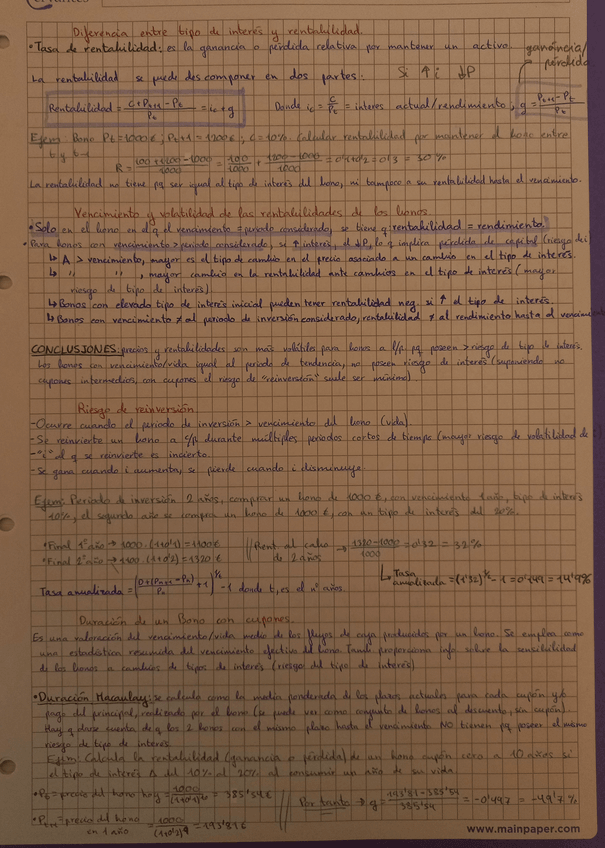 Diferencia entre tipo de interés y rentabilidad.
• Tasa de rentabilidad: es la ganancia o pérdida relativa por mantener un activo.
ganancia/pérdida
La rentabilidad se puede descomponer en dos partes: Si ↑i ↓P
Rentabilidad = (C+Pt+1-Pt)/Pt = ic+g Donde ic = C/Pt = interes actual/rendimiento, g = (Pt+1-Pt)/Pt
Ejem: Bono Pt=1000€; Pt+1=1200€; C=10%. Calcular rentabilidad por mantener el bono entre
t y t-1
R = (100+1200-1000)/1000 = 100/1000 + (1200-1000)/1000 = 0'1+0'2=0'3 = 30%
La rentabilidad no tiene pq ser igual al tipo de interés del bono, ni tampoco a su rentabilidad hasta el vencimiento.
Vencimiento y volatilidad de las rentabilidades de los bonos.
• Solo en el bono en el q el vencimiento = periodo considerado, se tiene q rentabilidad = rendimiento.
• Para bonos con vencimiento > periodo considerado, si ↑ interés, el ↓P, lo q implica pérdida de capital (riesgo de i)
↳ A > vencimiento, mayor es el tipo de cambio en el precio asociado a un cambio en el tipo de interés.
↳ " " , mayor cambio en la rentabilidad ante cambios en el tipo de interés (mayor
riesgo de tipo de interés).
↳ Bonos con elevado tipo de interés inicial pueden tener rentabilidad neg. si ↑ el tipo de interés.
↳ Bonos con vencimiento ≠ al periodo de inversión considerado, rentabilidad ≠ al rendimiento hasta el vencimiento
CONCLUSIONES: precios y rentabilidades son más volátiles para bonos a l/p pq poseen > riesgo de tipo de interés.
Los bonos con vencimiento/vida igual al periodo de tendencia, no poseen riesgo de interés (suponiendo no
cupones intermedios, con cupones el riesgo de "reinversión" suele ser mínimo).
Riesgo de reinversión
- Ocurre cuando el periodo de inversión > vencimiento del bono (vida).
- Se reinvierte un bono a c/p durante múltiples periodos cortos de tiempo (mayor riesgo de volatilidad de i)
- "i" al q se reinvierte es incierto.
- Se gana cuando i aumenta, se pierde cuando i disminuye.
Ejem: Periodo de inversión 2 años, comprar un bono de 1000€, con vencimiento 1 año, tipo de interés
10%, el segundo año se compra un bono de 1000€, con un tipo de interés del 20%.
• Final 1º año → 1000·(1+0'1)=1100€
• Final 2º año → 1100·(1+0'2)=1320€
Rent. al cabo de 2 años → (1320-1000)/1000 = 0'32 = 32%
↳ Tasa anualizada = (1'32)^½ - 1 = 0'149 = 14'9%
Tasa anualizada = ((D+(Pn+1-Pn))/Pn + 1)^(1/t) - 1 donde t, es el nº años.
Duración de un Bono con cupones.
Es una valoración del vencimiento/vida medio de los flujos de caja producidos por un bono. Se emplea como
una estadística resumida del vencimiento efectivo del bono. Tamb proporciona info sobre la sensibilidad
de los bonos a cambios de tipos de interés (riesgo del tipo de interés)
• Duración Macaulay: se calcula como la media ponderada de los plazos actuales para cada cupón y/o
pago del principal, realizado por el bono (se puede ver como conjunto de bonos al descuento, sin cupón).
Hay q darse cuenta de q los 2 bonos con el mismo plazo hasta el vencimiento NO tienen pq poseer el mismo
riesgo de tipo de interés
Ejem: Calcula la rentabilidad (ganancia o pérdida) de un bono cupón cero a 10 años si
el tipo de interés Δ del 10% al 20% al consumir un año de su vida.
• Pt = precio del bono hoy = 1000/(1+0'1)^10 = 385'54€
Por tanto → g = (193'81-385'54)/385'54 = -0'497 = -49'7%
• Pt+1 = precio del bono en 1 año = 1000/(1+0'2)^9 = 193'81€
www.mainpaper.com